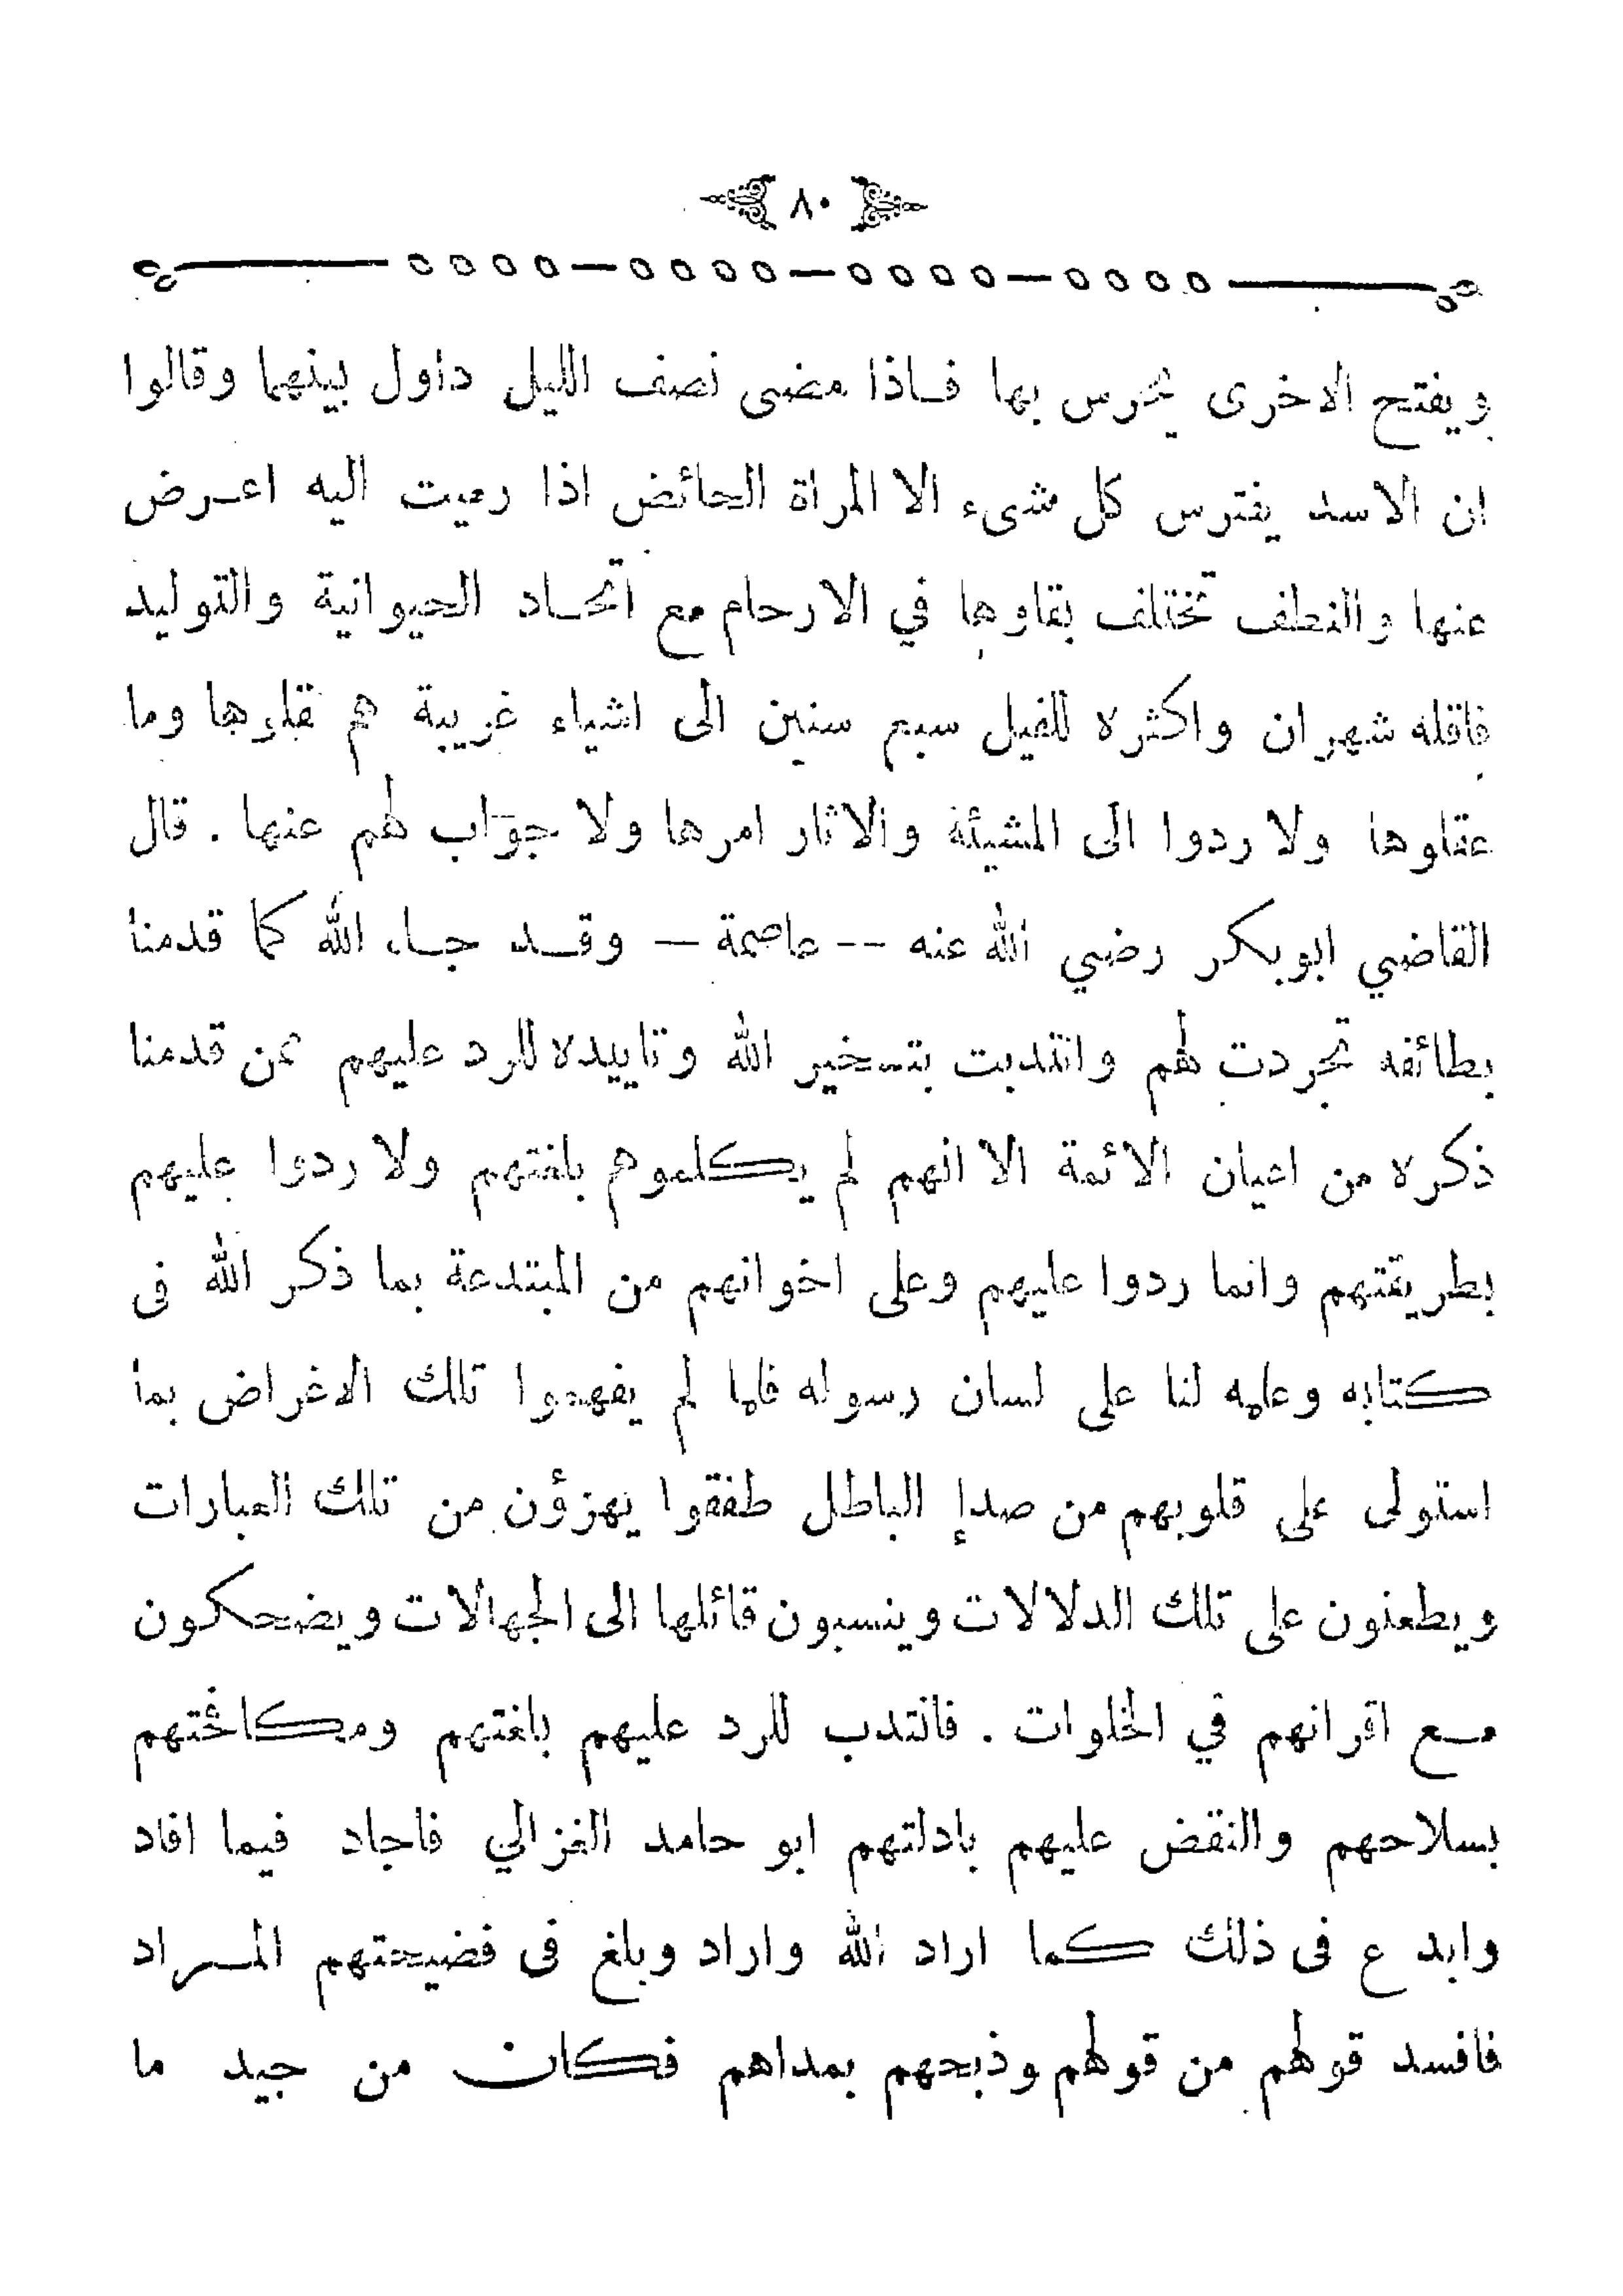 ٨٠
ويفتح الاخرى يحرس بها فاذا مضى نصف الليل داول بينهما وقالوا
ان الاسد يفترس كل شىء الا المراة الحائض اذا رميت اليه اعرض
عنها والنطف تختلف بقاوها في الارحام مع اتحاد الحيوانية والتوليد
فاقله شهران واكثره للفيل سبع سنين الى اشياء غريبة هم نقلوها وما
عقلوها ولا ردوا الى المشيئة والاثار امرها ولا جوّاب لهم عنها . قال
القاضي ابوبكر رضي الله عنه -- عاصمة — وقد جاء الله كما قدمنا
بطائفه تجردت لهم وانتدبت بتسخير الله وتاييده للرد عليهم ممن قدمنا
ذكره من اعيان الائمة الا انهم لم يكلموهم بلغتهم ولا ردوا عليهم
بطريقتهم وانما ردوا عليهم وعلى اخوانهم من المبتدعة بما ذكر الله فى
كتابه وعلمه لنا على لسان رسوله فلما لم يفهموا تلك الاغراض بما
استولى على قلوبهم من صدإ الباطل طفقوا يهزؤن من تلك العبارات
ويطعنون على تلك الدلالات وينسبون قائلها الى الجهالات ويضحكون
مع اقرانهم في الخلوات . فانتدب للرد عليهم بلغتهم ومكافحتهم
بسلاحهم والنقض عليهم بادلتهم ابو حامد الغزالي فاجاد فيما افاد
وابدع فى ذلك كما اراد الله واراد وبلغ فى فضيحتهم المراد
فافسد قولهم من قولهم وذبحهم بمداهم فكان من جيد ما